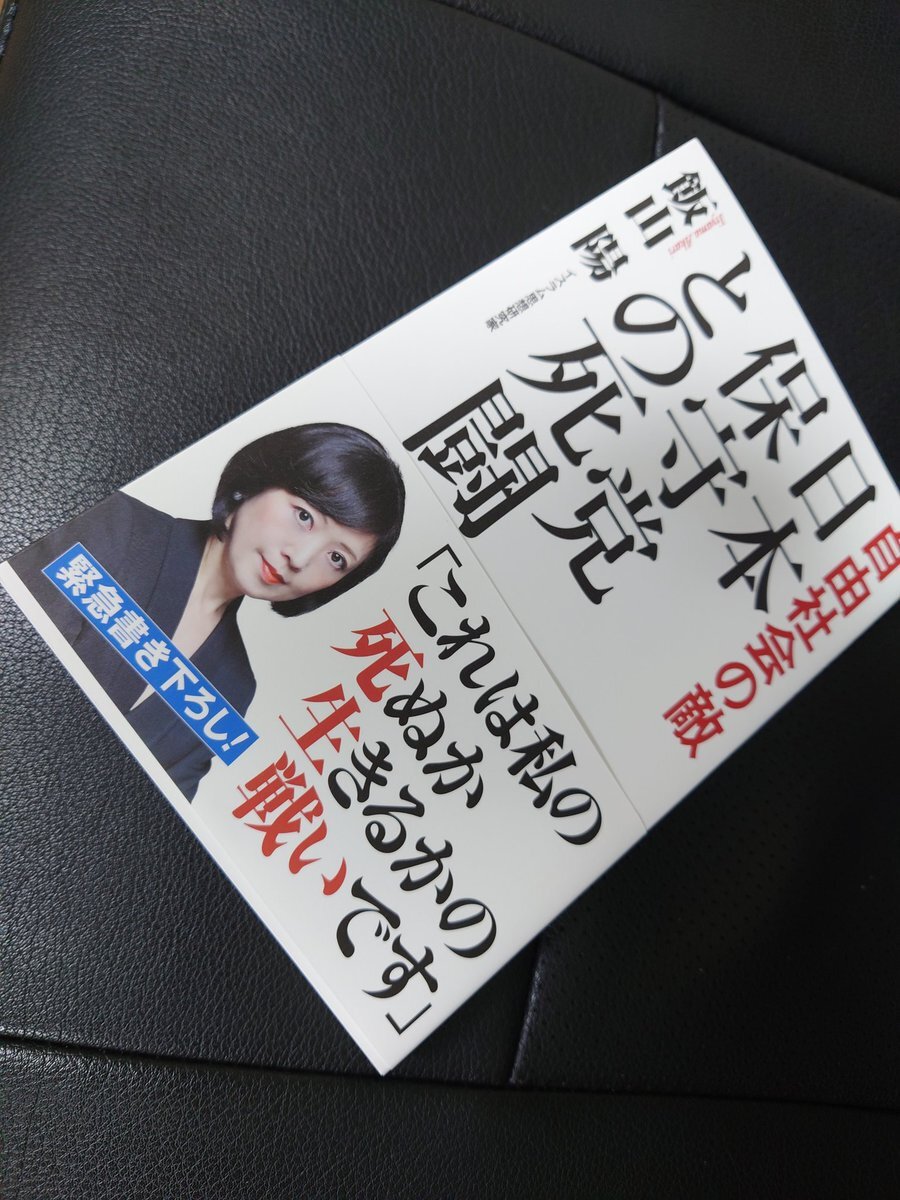 自由社会の敵
日本
保守党
との死闘
飯山陽
Iiyama Akari
イスラム思想研究家
「これは私の
死ぬか
生きるかの
戦いです」
緊急書き下ろし!